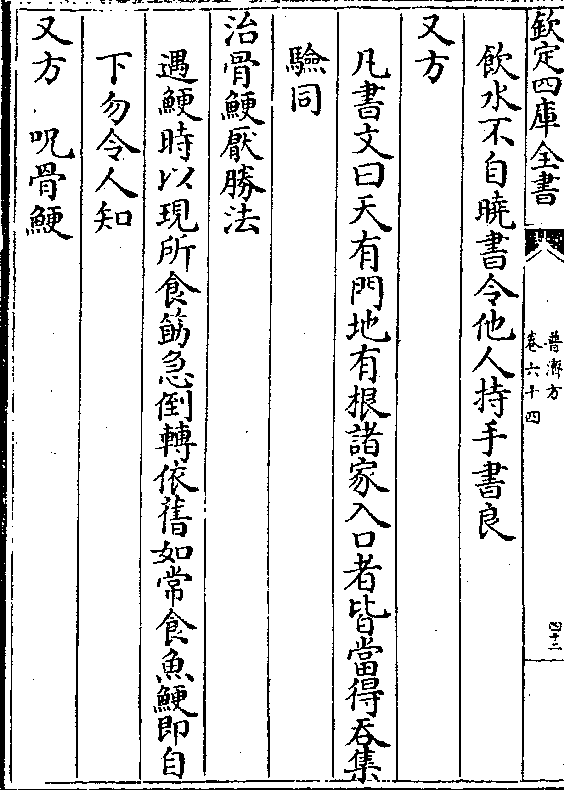 欽定四庫全書
普濟方
卷六十四
四十二
飲水不自曉書令他人持手書良
又方
凡書文曰天有門地有根諸家入口者皆當得吞集
驗同
治骨鯁厭勝法
遇鯁時以現所食筯急倒轉依舊如常食魚鯁即自
下勿令人知
又方　呪骨鯁